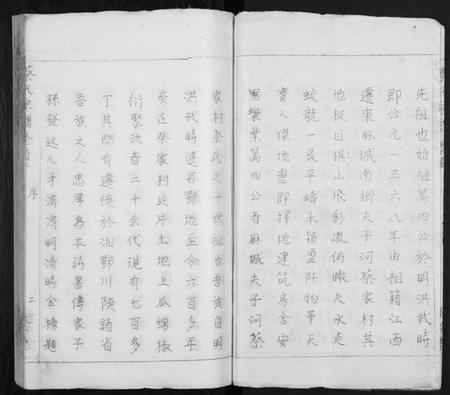 先祖也始祖萬四公於明洪武時
即公元一三六八年由祖籍江西
遷來麻城南鄉夫子河蔡家村其
地极目棋山飛彩鳳俯瞰大水走
蛟龍一展平疇禾穎盈阡物華天
寶人傑地靈即擇地建筑房舍安
居樂業萬四公者麻城夫子河蔡
家村蔡氏之一世祖也吾族自明
洪武時遷居鄂地至今六百多年
來在蔡家村這片土地上瓜綿椒
衍聚族者二十余代現有七百多
丁其間有遷徙於湘鄂川陝諸省
吾族之人忠厚為本詩書傳家子
孫發达人才濟濟明清時金榜題
蔡氏宗譜 序 二